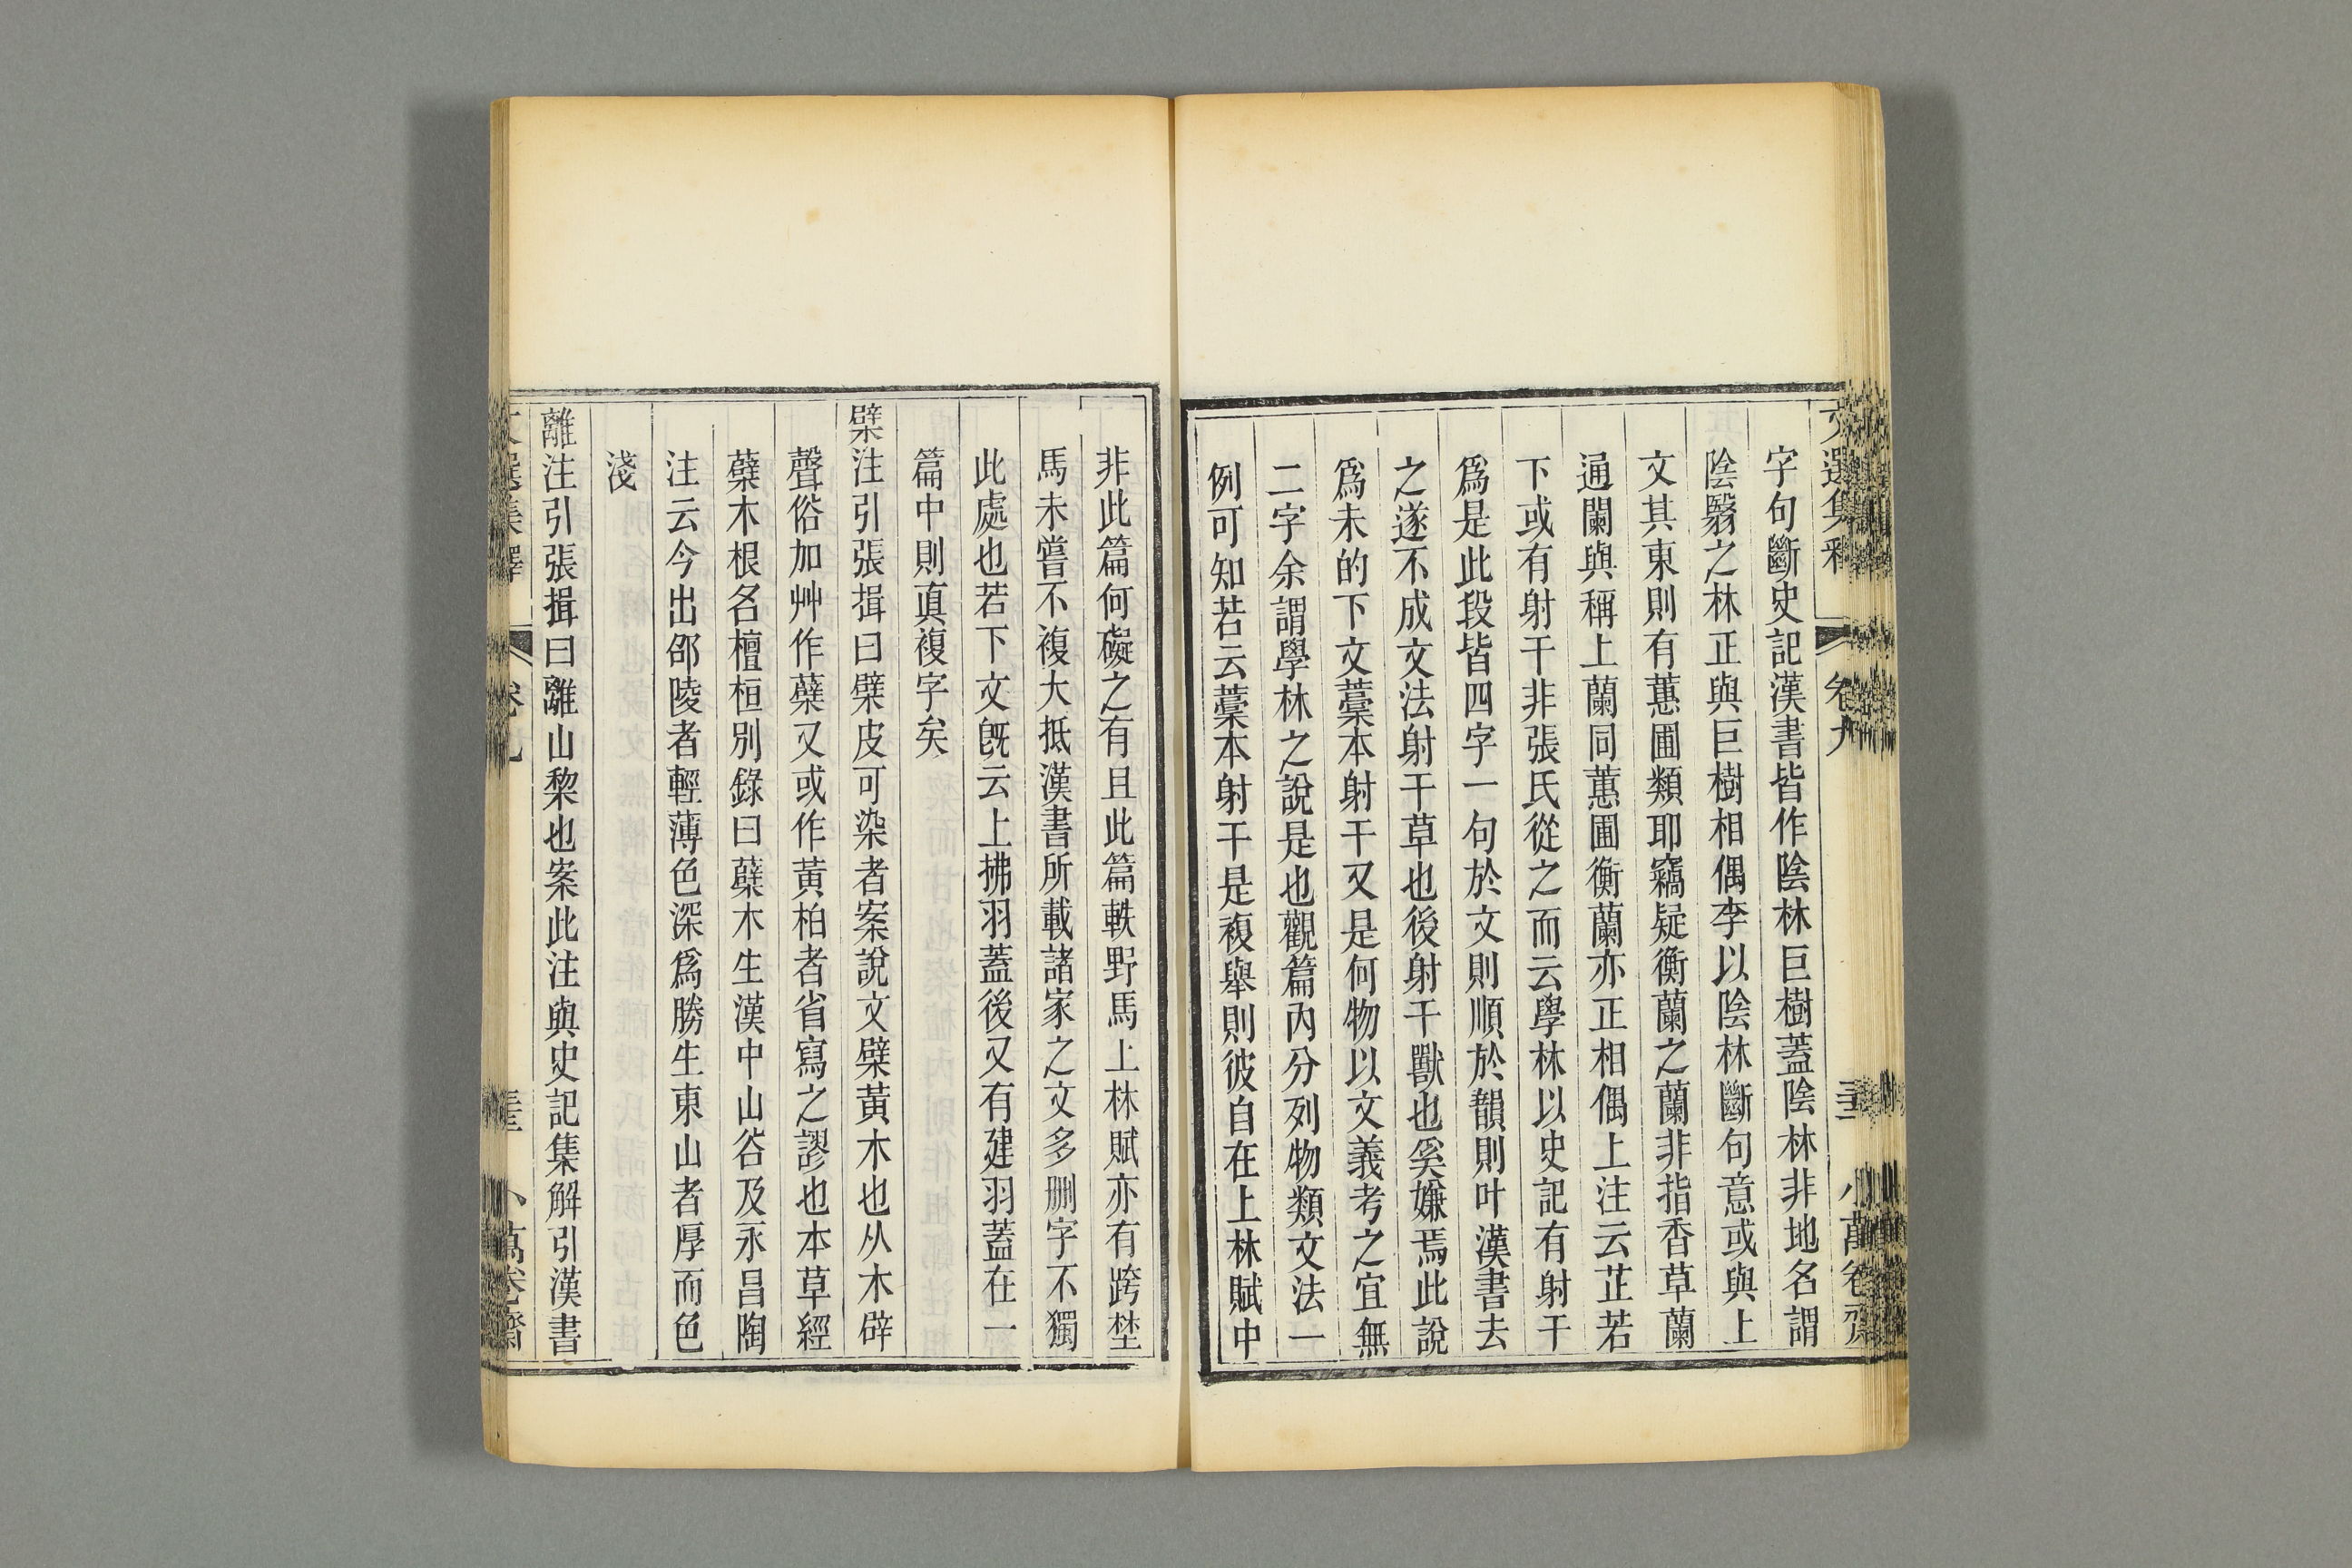 字句斷史記漢書皆作陰林巨樹蓋陰林非地名謂
陰翳之林正與巨樹相偶李以陰林斷句意或與上
文其東則有蕙圃類耶竊疑衡蘭之蘭非指香草蘭
通闌與稱上蘭同蕙圃衡蘭亦正相偶上注云芷若
下或有射干非張氏從之而云學林以史記有射干
爲是此段皆四字一句於文則順於韻則叶漢書去
之遂不成文法射干草也後射干獸也奚嫌焉此說
爲未的下文藁本射干又是何物以文義考之宜無
二字余謂學林之說是也觀篇內分列物類文法一
例可知若云藁本射干是複舉則彼自在上林賦中
非此篇何礙之有且此篇軼野馬上林賦亦有跨埜
馬未嘗不複大抵漢書所載諸家之文多刪字不獨
此處也若下文旣云上拂羽蓋後又有建羽蓋在一
篇中則眞複字矣
檗注引張揖曰檗皮可染者案說文檗黃木也从木辟
聲俗加艸作蘗又或作黃柏者省寫之謬也本草經
蘗木根名檀桓別錄曰蘗木生漢中山谷及永昌陶
注云今出邵陵者輕薄色深爲勝生東山者厚而色
淺
離注引張揖曰離山黎也案此注與史記集解引漢書
文選集釋 卷九 小萬卷齋